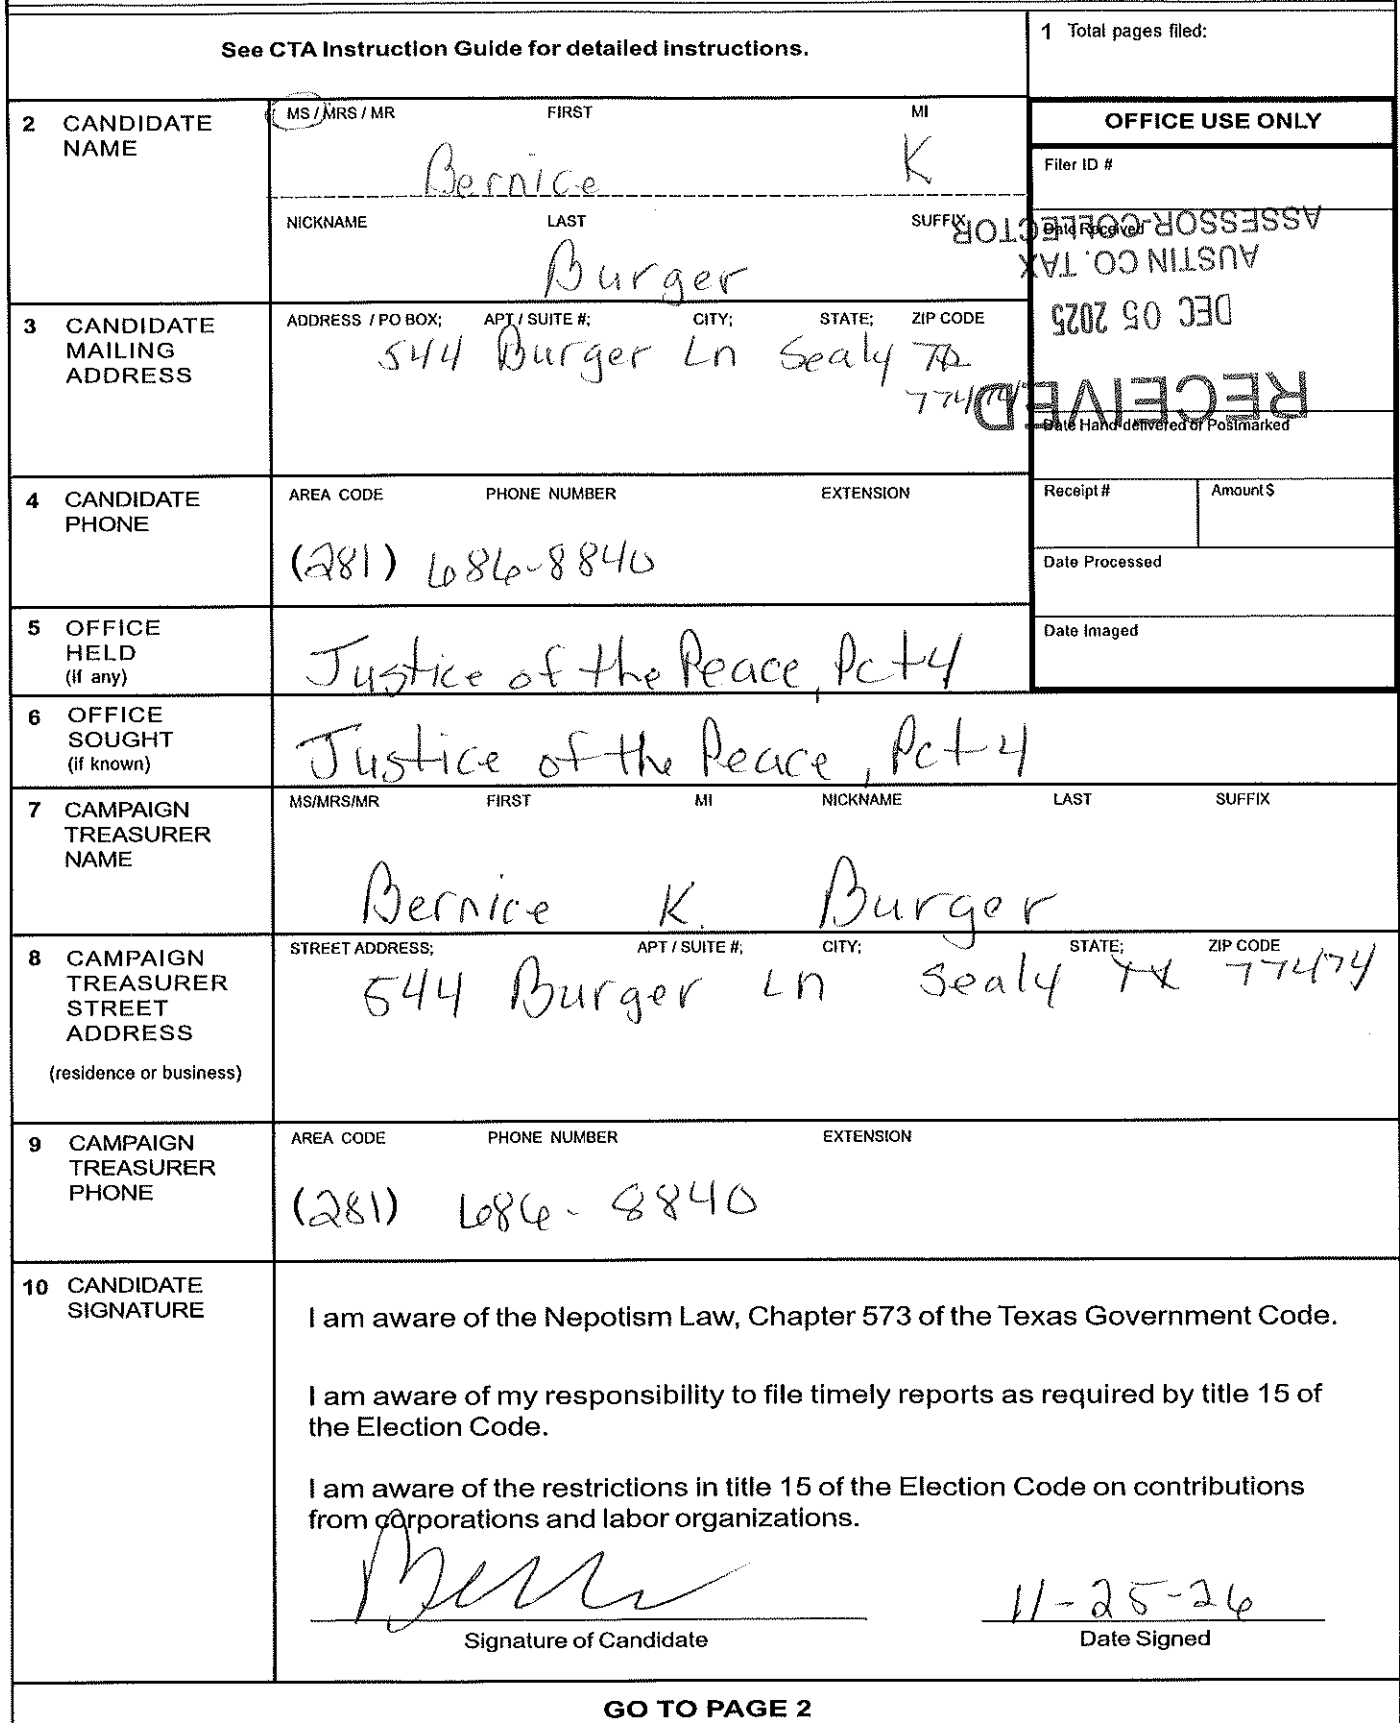 See CTA Instruction Guide for detailed instructions.
1 Total pages filed:
2 CANDIDATE NAME
MS / MRS / MR FIRST MI
Bernice K
NICKNAME LAST SUFFIX
Burger
OFFICE USE ONLY
Filer ID #
Date Received
ASSESSOR-COLLECTOR
AUSTIN CO. TAX
DEC 05 2025
RECEIVED
Date Hand-delivered or Postmarked
Receipt # Amount $
Date Processed
Date Imaged
3 CANDIDATE MAILING ADDRESS
ADDRESS / PO BOX; APT / SUITE #; CITY; STATE; ZIP CODE
544 Burger Ln Sealy TX
77474
4 CANDIDATE PHONE
AREA CODE PHONE NUMBER EXTENSION
(281) 686-8840
5 OFFICE HELD (if any)
Justice of the Peace, Pct 4
6 OFFICE SOUGHT (if known)
Justice of the Peace, Pct 4
7 CAMPAIGN TREASURER NAME
MS/MRS/MR FIRST MI NICKNAME LAST SUFFIX
Bernice K. Burger
8 CAMPAIGN TREASURER STREET ADDRESS
(residence or business)
STREET ADDRESS; APT / SUITE #; CITY; STATE; ZIP CODE
544 Burger Ln Sealy TX 77474
9 CAMPAIGN TREASURER PHONE
AREA CODE PHONE NUMBER EXTENSION
(281) 686-8840
10 CANDIDATE SIGNATURE
I am aware of the Nepotism Law, Chapter 573 of the Texas Government Code.
I am aware of my responsibility to file timely reports as required by title 15 of
the Election Code.
I am aware of the restrictions in title 15 of the Election Code on contributions
from corporations and labor organizations.
11-25-26
Signature of Candidate Date Signed
GO TO PAGE 2